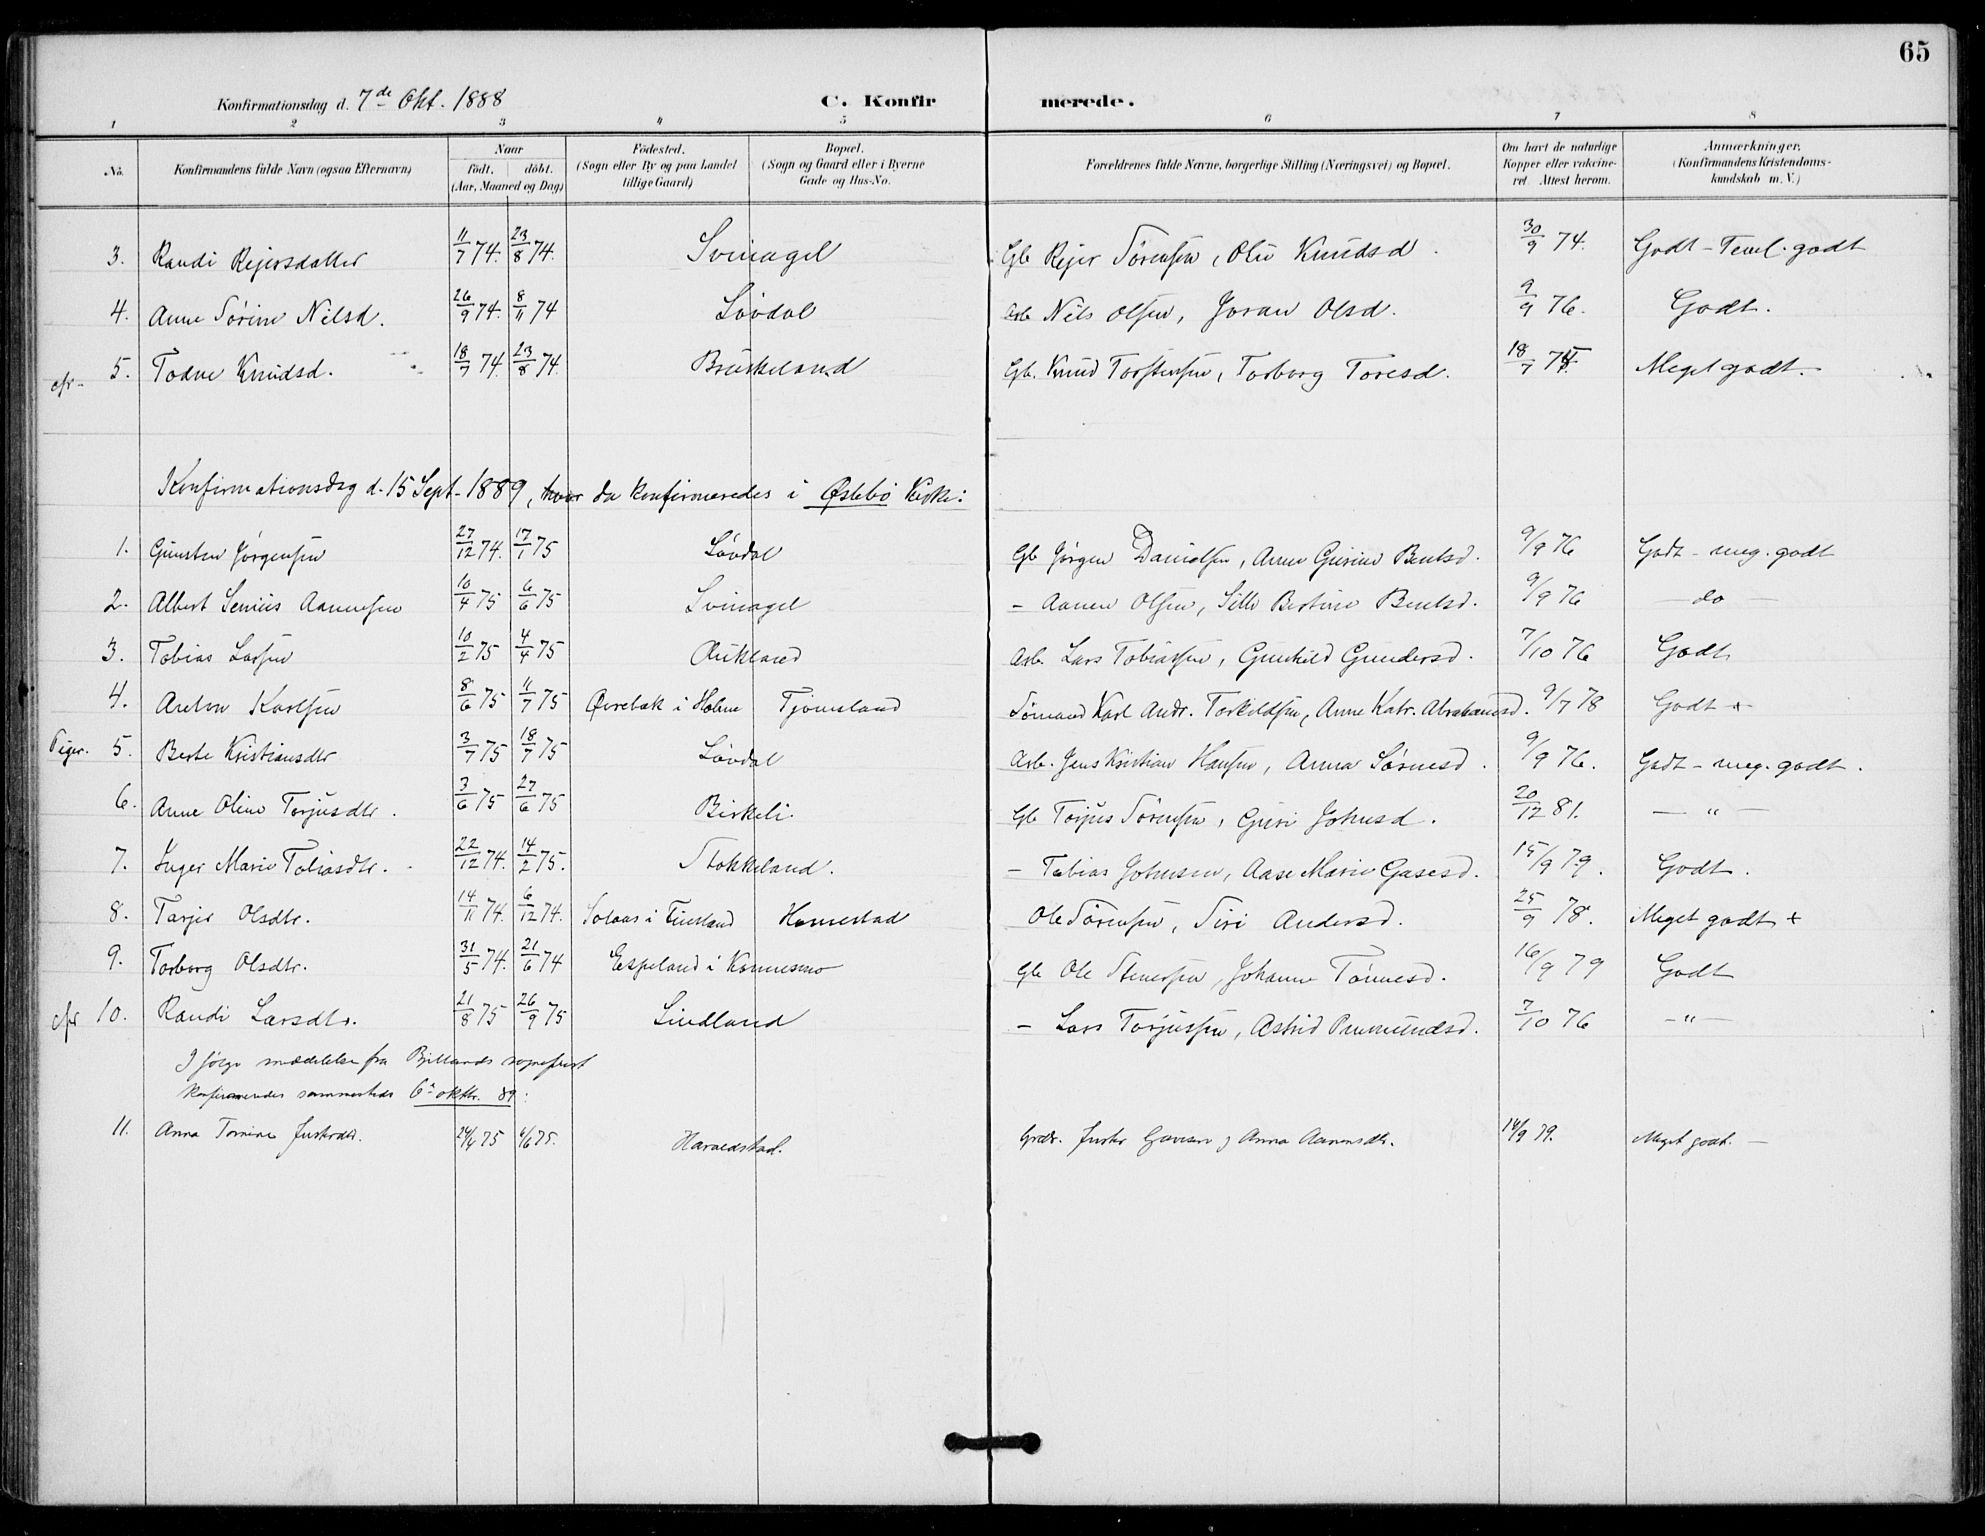 65
Konfirmationsdag d. 7de Okt. 1888 C. Konfir merede.
1 2 3 4 5 6 7 8
No. Konfirmandens fulde Navn (ogsaa Efternavn) Naar födt. döbt. (Aar, Maaned og Dag) Födested. (Sogn eller By og paa Landet tillige Gaard) Bopæl. (Sogn og Gaard eller i Byerne Gade og Hus-No. Forældrenes fulde Navne, borgerlige Stilling (Næringsvei) og Bopæl. Om havt de naturlige Kopper eller vakcineret. Attest herom. Anmærkninger. (Konfirmandens Kristendomskundskab m. V.)
3. Randi Rejersdatter 11/7 74. 23/8 74. Svinagel Gb Rejer Sörensen, Oliv Knudsd. 30/9 74. Godt - Teml. godt
4. Anne Sörine Nilsd. 26/9 74. 8/11 74 Lövdal Arb Nils Olsen, Joran Olsd. 9/9 76. Godt.
cfr- 5. Todne Knudsd. 18/7 74. 23/8 74. Bruskeland Gb. Knud Torstensen, Torborg Toresd. 18/7 75. Meget godt.
Konfirmationsdag d. 15 Sept. 1889, da konfirmeredes i Øslebö Kirke:
1. Gunsten Jörgensen 27/12 74. 17/1 75 Lövdal Gb Jörgen Danielsen, Anne Gurine Bentsd. 9/9 76 Godt - meg. godt
2. Albert Senius Aanensen 10/4 75 6/6 75 Svinagel - Aanen Olsen, Sille Bertine Bentsd. 9/9 76 - do -
3. Tobias Larsen 10/2 75 4/4 75 Aukland Arb. Lars Tobiassen, Gunhild Gundersd. 7/10 76 Godt
4. Anton Karlsen 8/6 75 11/7 75 Övrebæk i Holme Tjomsland Sömand Karl Andr. Torkildsen, Anne Katr. Abrahamsd. 9/7 78 Godt +
Piger. 5. Berte Kristiansdtr 3/7 75 18/7 75 Lövdal Arb. Jens Kristian Hansen, Anna Sörnesd. 9/9 76. Godt - meg. godt.
6. Anne Oline Torjusdtr. 3/6 75 27/6 75 Birkeli. Gb Torjus Sörensen, Guri Johnsd. 20/12 81. - " -
7. Inger Marie Tobiasdtr. 22/12 74. 14/2 75. Stokkeland. - Tobias Johnsen, Aase Marie Gasesd. 15/9 79. Godt.
8. Tarjer Olsdtr. 14/11 74. 6/12 74. Solaas i Finsland Homestad Ole Sörensen, Siri Andersd. 25/9 78. Meget godt +
9. Torborg Olsdtr. 31/5 74. 21/6 74 Espeland i Konnesmo Gb Ole Stenersen, Johanne Tönnesd. 16/9 79 Godt
cfr 10. Randi Larsdtr. 21/8 75 26/9 75 Lindland - Lars Torjussen, Astrid Ommundsd. 7/10 76 - " -
I fölge meddelelse fra Bjellands sogneprest
konfirmerdes sammesteds 6te oktbr. 89:
11. Anna Tomine Justsdtr. 24/4 75 6/6 75. Haraldstad. Grdbr. Anna Aanensdtr. 14/9 79. Meget godt. -